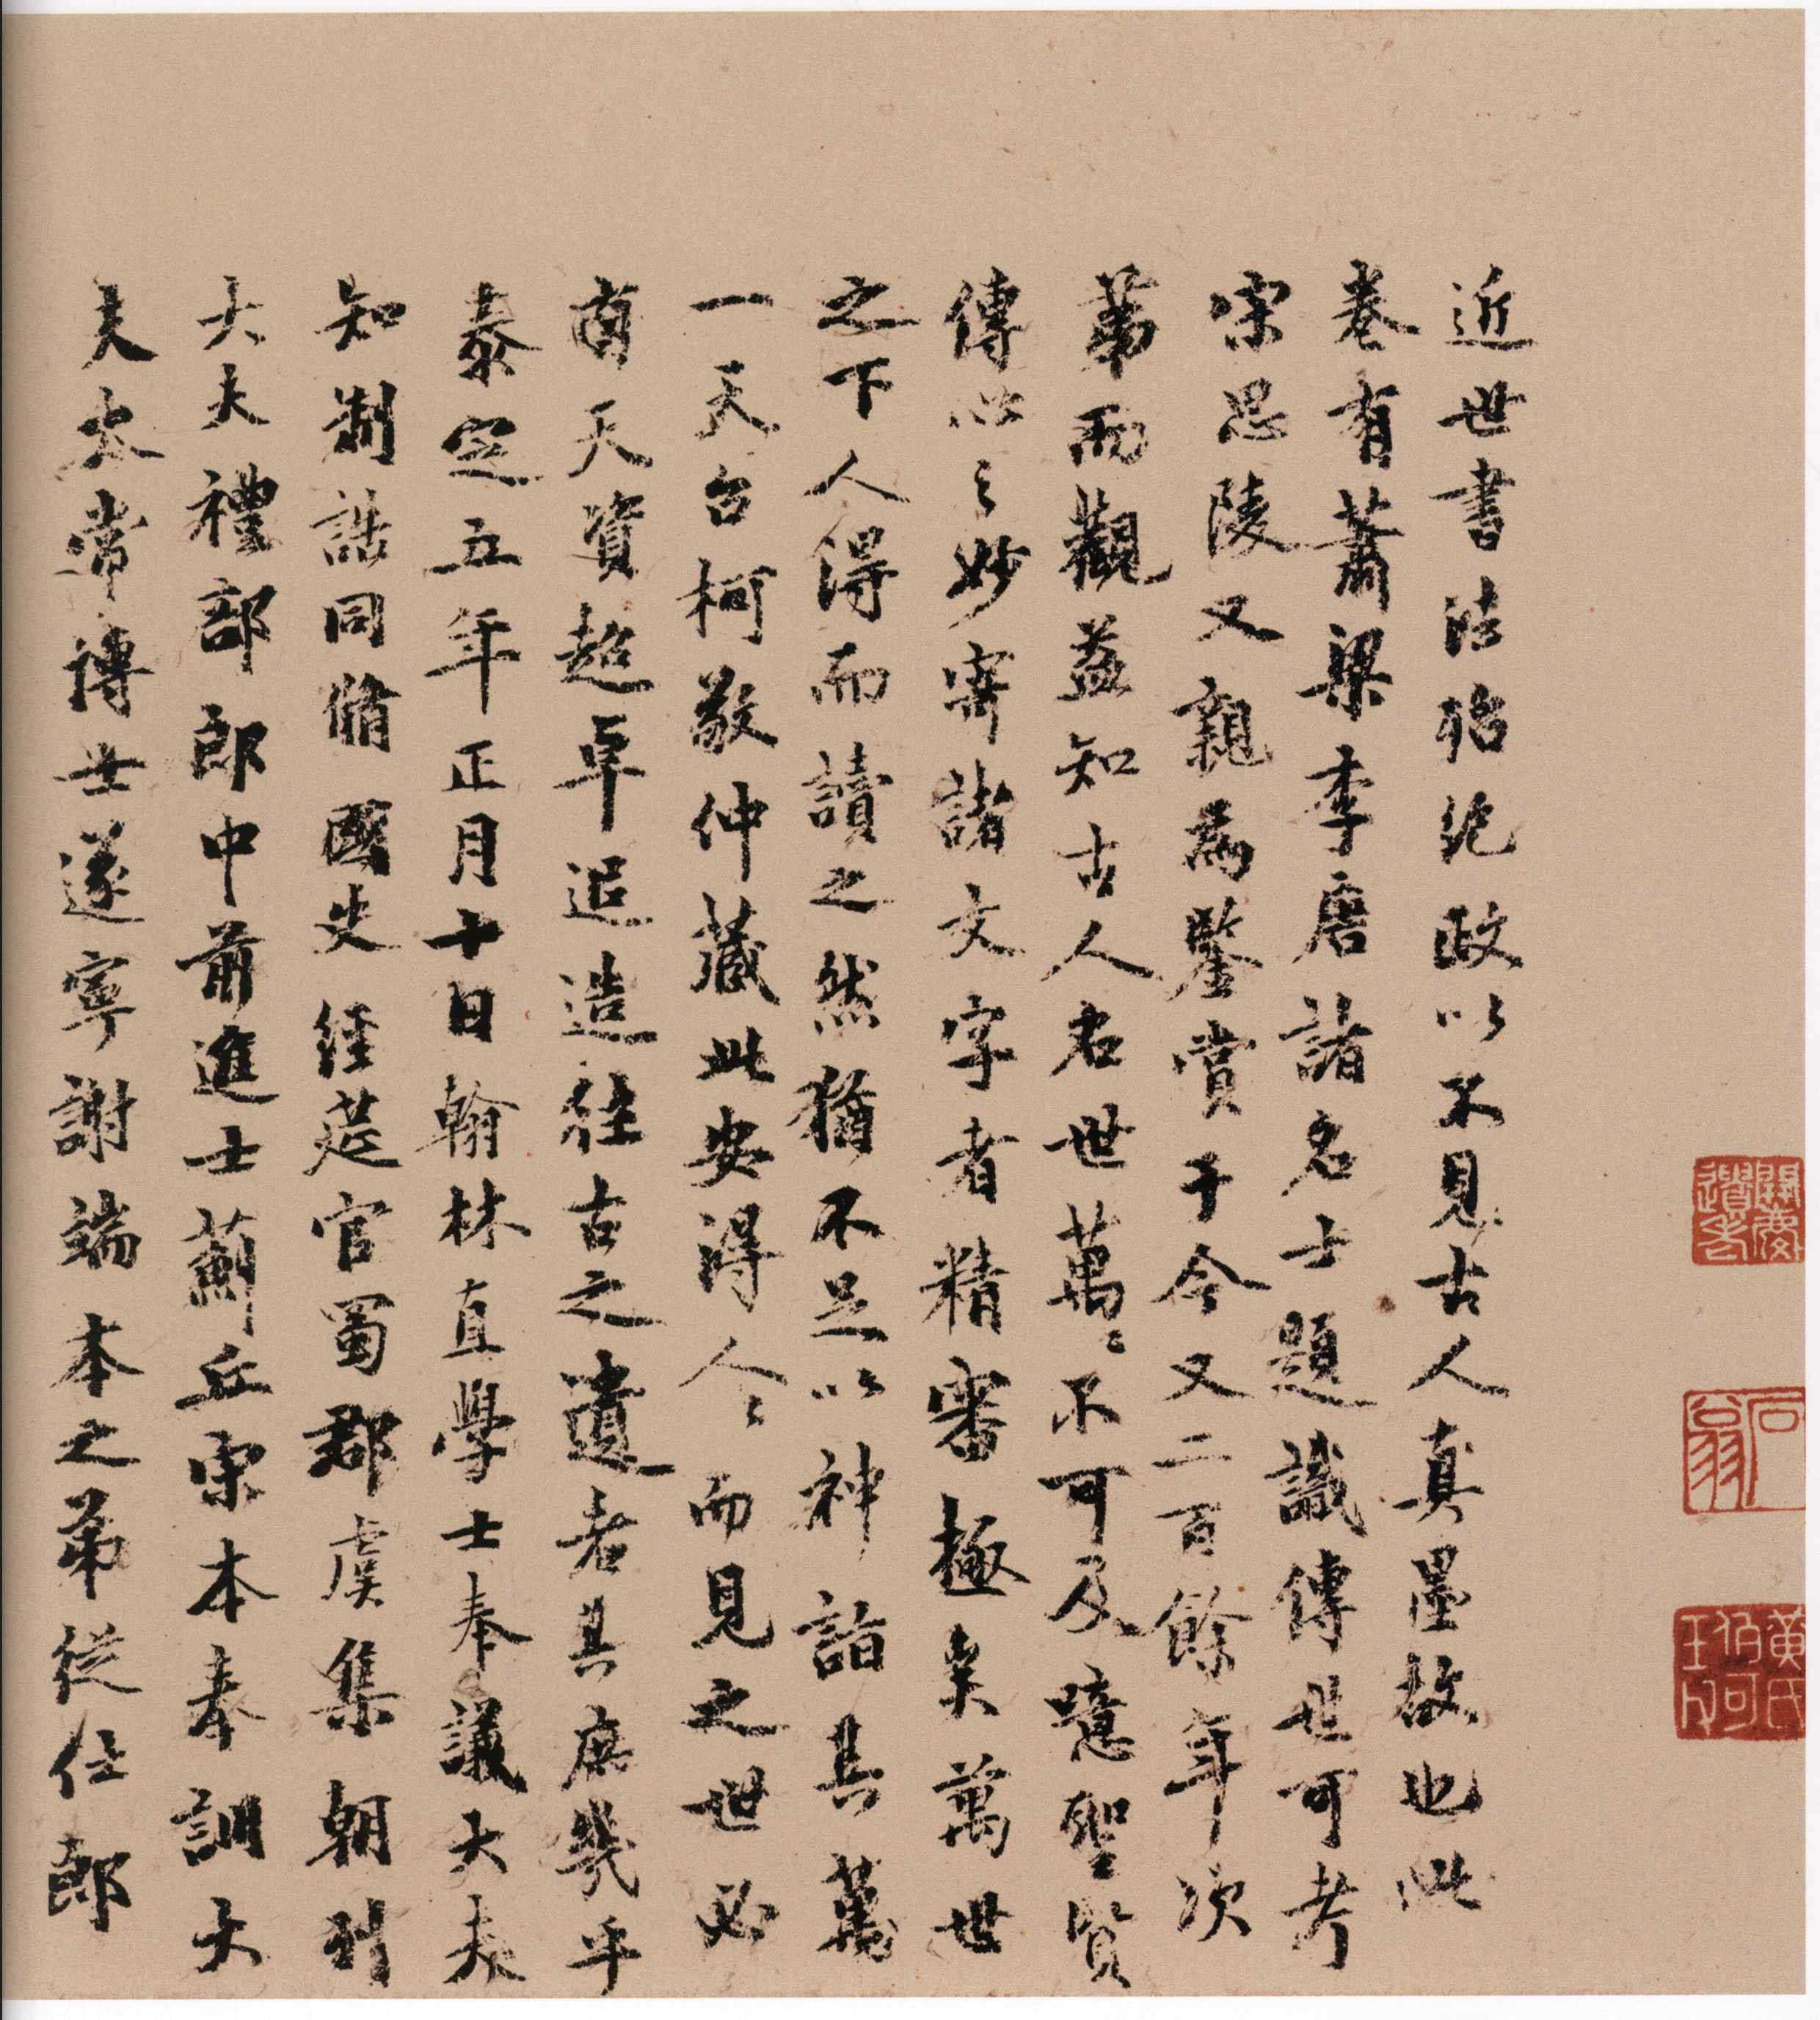 近世書法殆絶政以不見古人真墨故也此
卷有蕭梁李唐諸名士題識傳世可考
宋思陵又親為鑒賞于今又二百餘年次
第而觀益知古人名世萬〻不可及噫聖賢
傳心之妙寄諸文字者精審極矣萬世
之下人得而讀之然猶不足以神詣其萬
一天台柯敬仲藏此安得人〻而見之世必
有天資超卓追造往古之遺者其庶幾乎
泰定五年正月十日翰林直學士奉議大夫
知制誥同脩國史經筵官蜀郡虞集朝列
大夫禮部郎中前進士薊丘宋本奉訓大
夫太常博士遂寧謝端本之弟從仕郎
石翁
黃氏伯可